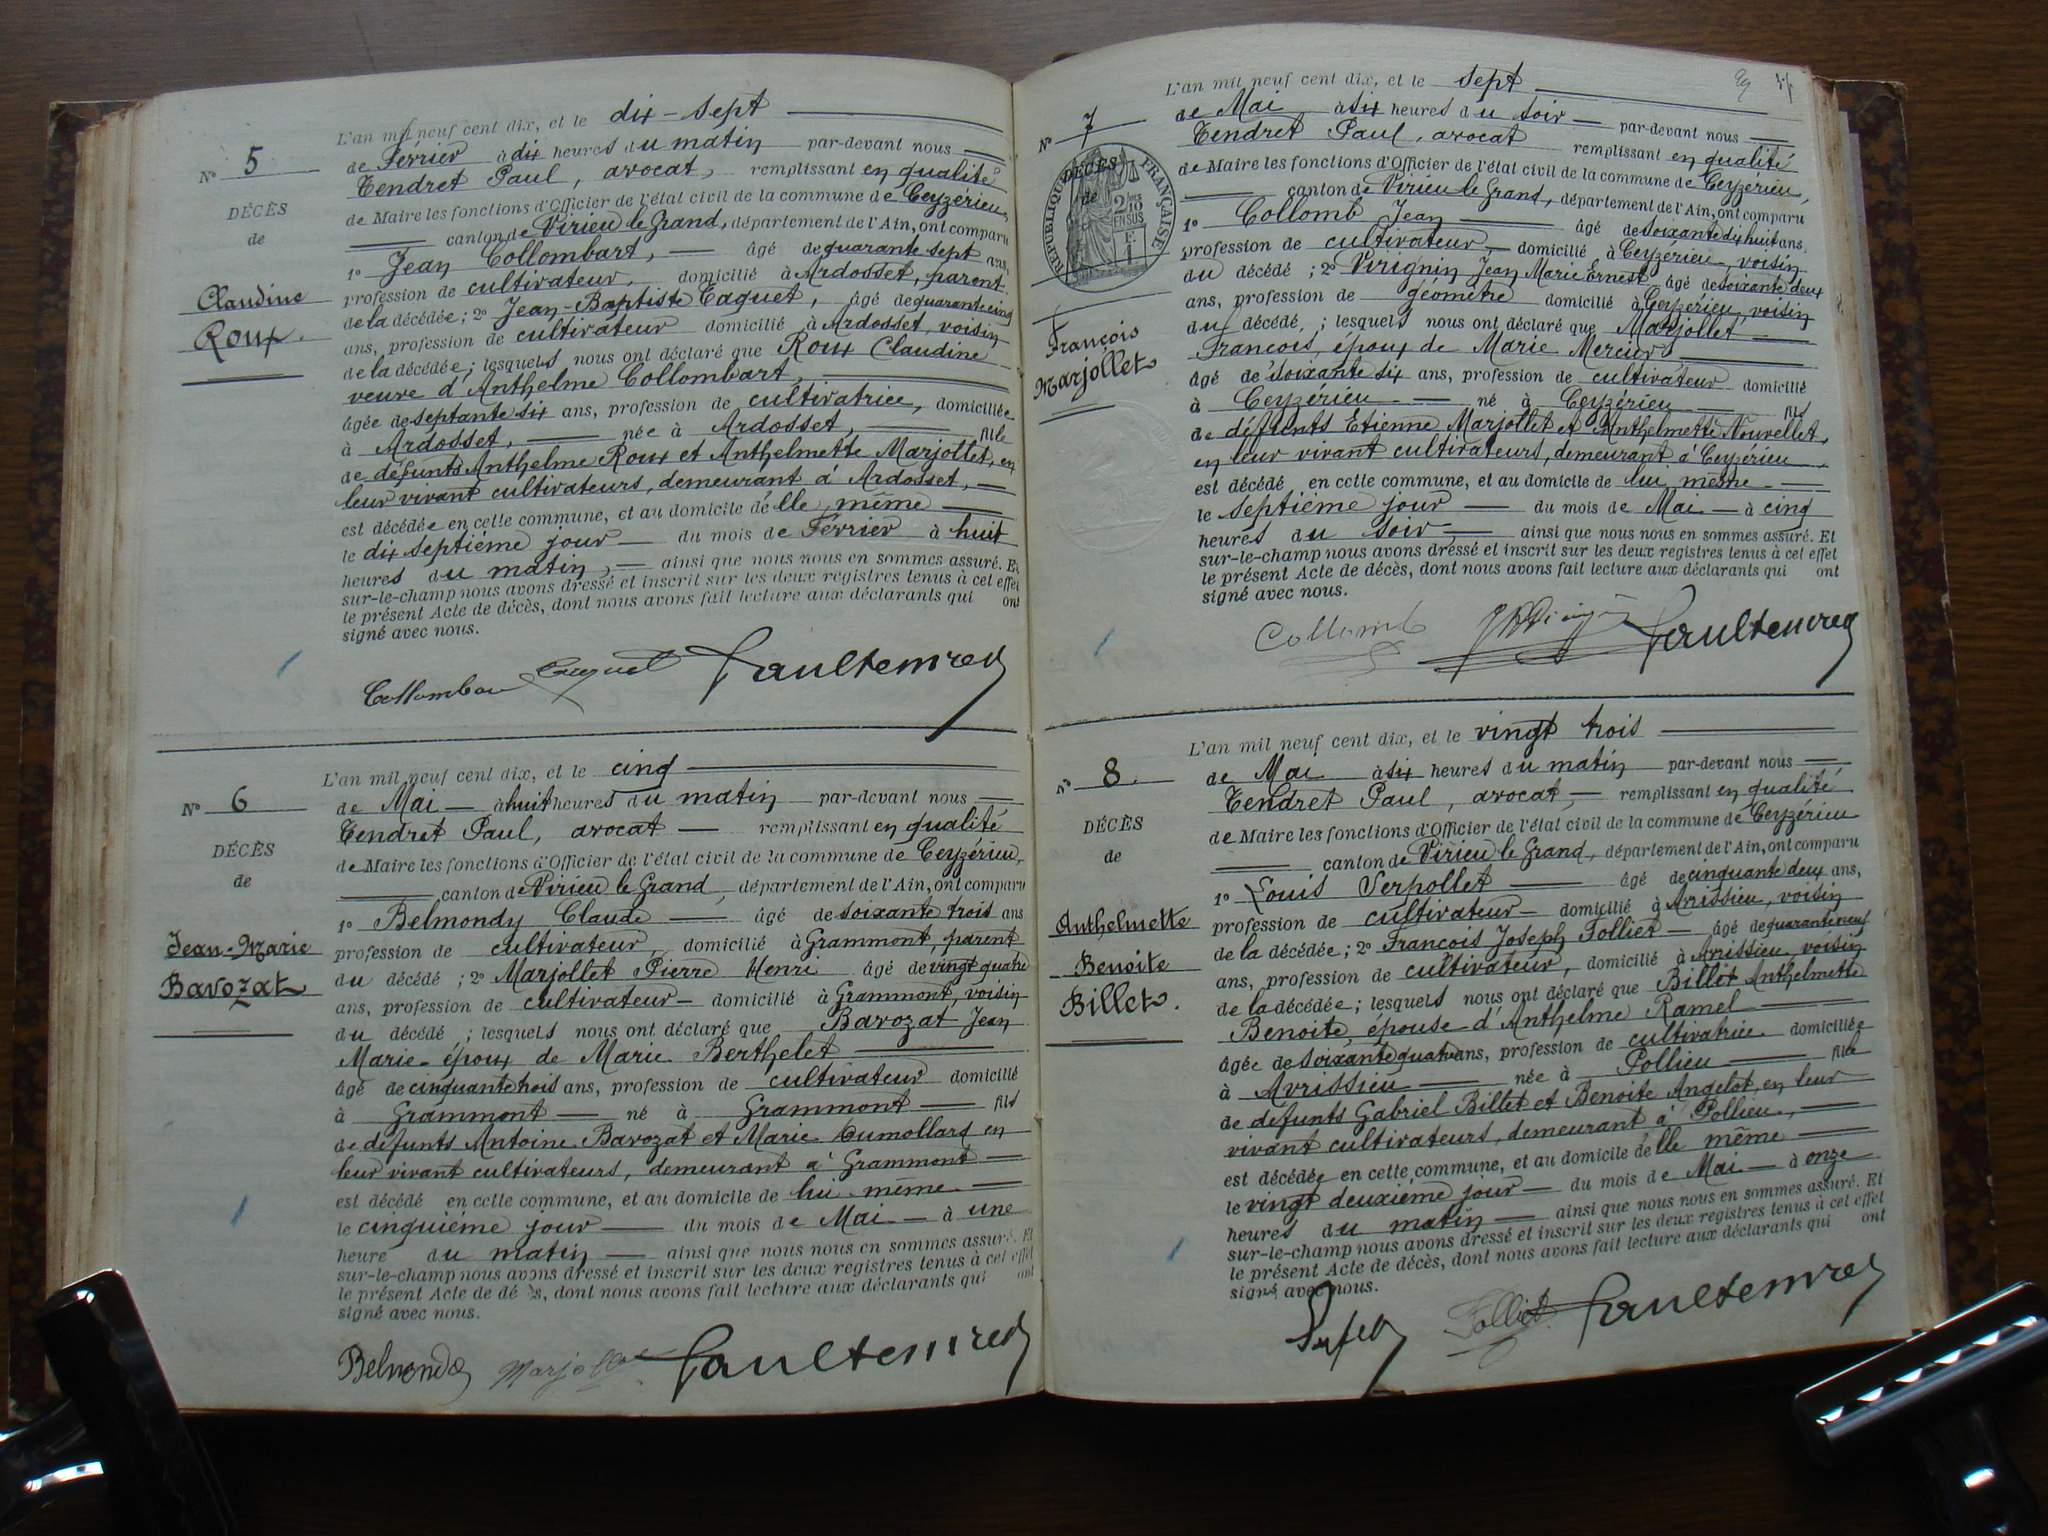 L'an mil neuf cent dix, et le dix-sept
N° 5
de Février à dix heures du matin par-devant nous
Tendret Paul, avocat, remplissant en qualité
DÉCÈS
de
Claudine
Roux.
de Maire les fonctions d'Officier de l'état civil de la commune de Ceyzérieu,
canton de Virieu le Grand, département de l'Ain, ont comparu
1° Jean Collombart, âgé de quarante sept ans,
profession de cultivateur, domicilié à Ardosset, parent
de la décédée; 2° Jean-Baptiste Taquet, âgé de quarante cinq
ans, profession de cultivateur domicilié à Ardosset, voisin
de la décédée; lesquels nous ont déclaré que Roux Claudine
veuve d'Anthelme Collombart,
âgée de septante six ans, profession de cultivatrice, domiciliée
à Ardosset, née à Ardosset, fille
de défunts Anthelme Roux et Anthelmette Marjollet, en
leur vivant cultivateurs, demeurant à Ardosset,
est décédée en cette commune, et au domicile d'elle même
le dix septième jour du mois de Février à huit
heures du matin, ainsi que nous nous en sommes assuré. Et
sur-le-champ nous avons dressé et inscrit sur les deux registres tenus à cet effet
le présent Acte de décès, dont nous avons fait lecture aux déclarants qui ont
signé avec nous.
L'an mil neuf cent dix, et le cinq
N° 6
de Mai à huit heures du matin par-devant nous
Tendret Paul, avocat remplissant en qualité
DÉCÈS
de
Jean-Marie
Bavozat
de Maire les fonctions d'Officier de l'état civil de la commune de Ceyzérieu,
canton de Virieu le Grand, département de l'Ain, ont comparu
1° Belmondy Claude âgé de soixante trois ans
profession de cultivateur, domicilié à Grammont, parent
du décédé ; 2° Marjollet Pierre Henri âgé de vingt quatre
ans, profession de cultivateur domicilié à Grammont, voisin
du décédé ; lesquels nous ont déclaré que Bavozat Jean
Marie époux de Marie Berthelet
âgé de cinquante trois ans, profession de cultivateur domicilié
à Grammont né à Grammont fils
de défunts Antoine Bavozat et Marie Dumollard en
leur vivant cultivateurs, demeurant à Grammont
est décédé en cette commune, et au domicile de lui même
le cinquième jour du mois de Mai à une
heure du matin ainsi que nous nous en sommes assuré. Et
sur-le-champ nous avons dressé et inscrit sur les deux registres tenus à cet effet
le présent Acte de décès, dont nous avons fait lecture aux déclarants qui ont
signé avec nous.
Marjollet
L'an mil neuf cent dix, et le sept
N° 7
de Mai à six heures du soir par-devant nous
Tendret Paul, avocat remplissant en qualité
DÉCÈS
de
RÉPUBLIQUE FRANÇAISE
François
Marjollet
de Maire les fonctions d'Officier de l'état civil de la commune de Ceyzérieu,
canton de Virieu le Grand, département de l'Ain, ont comparu
1° Collomb Jean âgé de soixante dix huit ans,
profession de cultivateur domicilié à Ceyzérieu voisin
du décédé ; 2° Virignin Jean Marie Ernest âgé de soixante deux
ans, profession de géomètre domicilié à Ceyzérieu, voisin
du décédé ; lesquels nous ont déclaré que Marjollet
François, époux de Marie Mercier
âgé de soixante six ans, profession de cultivateur domicilié
à Ceyzérieu né à Ceyzérieu fils
de défunts Etienne Marjollet et Anthelmette Nouvellet,
en leur vivant cultivateurs, demeurant à Ceyzérieu,
est décédé en cette commune, et au domicile de lui même
le septième jour du mois de Mai à cinq
heures du soir ainsi que nous nous en sommes assuré. Et
sur-le-champ nous avons dressé et inscrit sur les deux registres tenus à cet effet
le présent Acte de décès, dont nous avons fait lecture aux déclarants qui ont
signé avec nous.
Collomb
L'an mil neuf cent dix, et le vingt trois
N° 8.
de Mai à six heures du matin par-devant nous
Tendret Paul, avocat, remplissant en qualité
DÉCÈS
de
Anthelmette
Benoite
Billet.
de Maire les fonctions d'Officier de l'état civil de la commune de Ceyzérieu
canton de Virieu le Grand, département de l'Ain, ont comparu
1° Louis Serpollet âgé de cinquante deux ans,
profession de cultivateur domicilié à Avrissieu, voisin
de la décédée; 2° François Joseph Folliet âgé de quarante neuf
ans, profession de cultivateur, domicilié à Avrissieu, voisin
de la décédée; lesquels nous ont déclaré que Billet Anthelmette
Benoite, épouse d'Anthelme Ramel
âgée de soixante quatre ans, profession de cultivatrice domiciliée
à Avrissieu née à Pollieu fille
de défunts Gabriel Billet et Benoite Angelot, en leur
vivant cultivateurs, demeurant à Pollieu,
est décédée en cette commune, et au domicile d'elle même
le vingt deuxième jour du mois de Mai à onze
heures du matin ainsi que nous nous en sommes assuré. Et
sur-le-champ nous avons dressé et inscrit sur les deux registres tenus à cet effet
le présent Acte de décès, dont nous avons fait lecture aux déclarants qui ont
signé avec nous.
Folliet